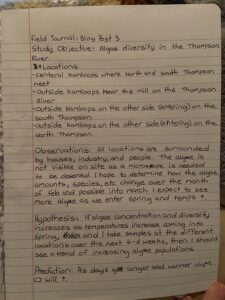 Field Journal: Blog Post 3
Study Objective: Algae diversity in the Thompson
River
4 Locations
- Central Kamloops where North and South Thompson
meet
- Outside Kamloops near the mill on the Thompson
River
- Outside Kamloops on the other side (entering) on the
South Thompson
- Outside Kamloops on the other side (entering) on the
North Thompson
Observations: All locations are surrounded
by houses, industry, and people. The algae is
not visible on site as a microscope is needed
to be observed. I hope to determine how the algae
amounts, species, etc change over the month
of Feb and possible into march. I expect to see
more algae as we enter spring and temps ↑.
Hypothesis: If algae concentration and diversity
increases as temperatures increase coming into
spring, and I take samples at the different
locations over the next 4-6 weeks, then I should
see a trend of increasing algae populations.
Prediction: As days get longer and warmer algae